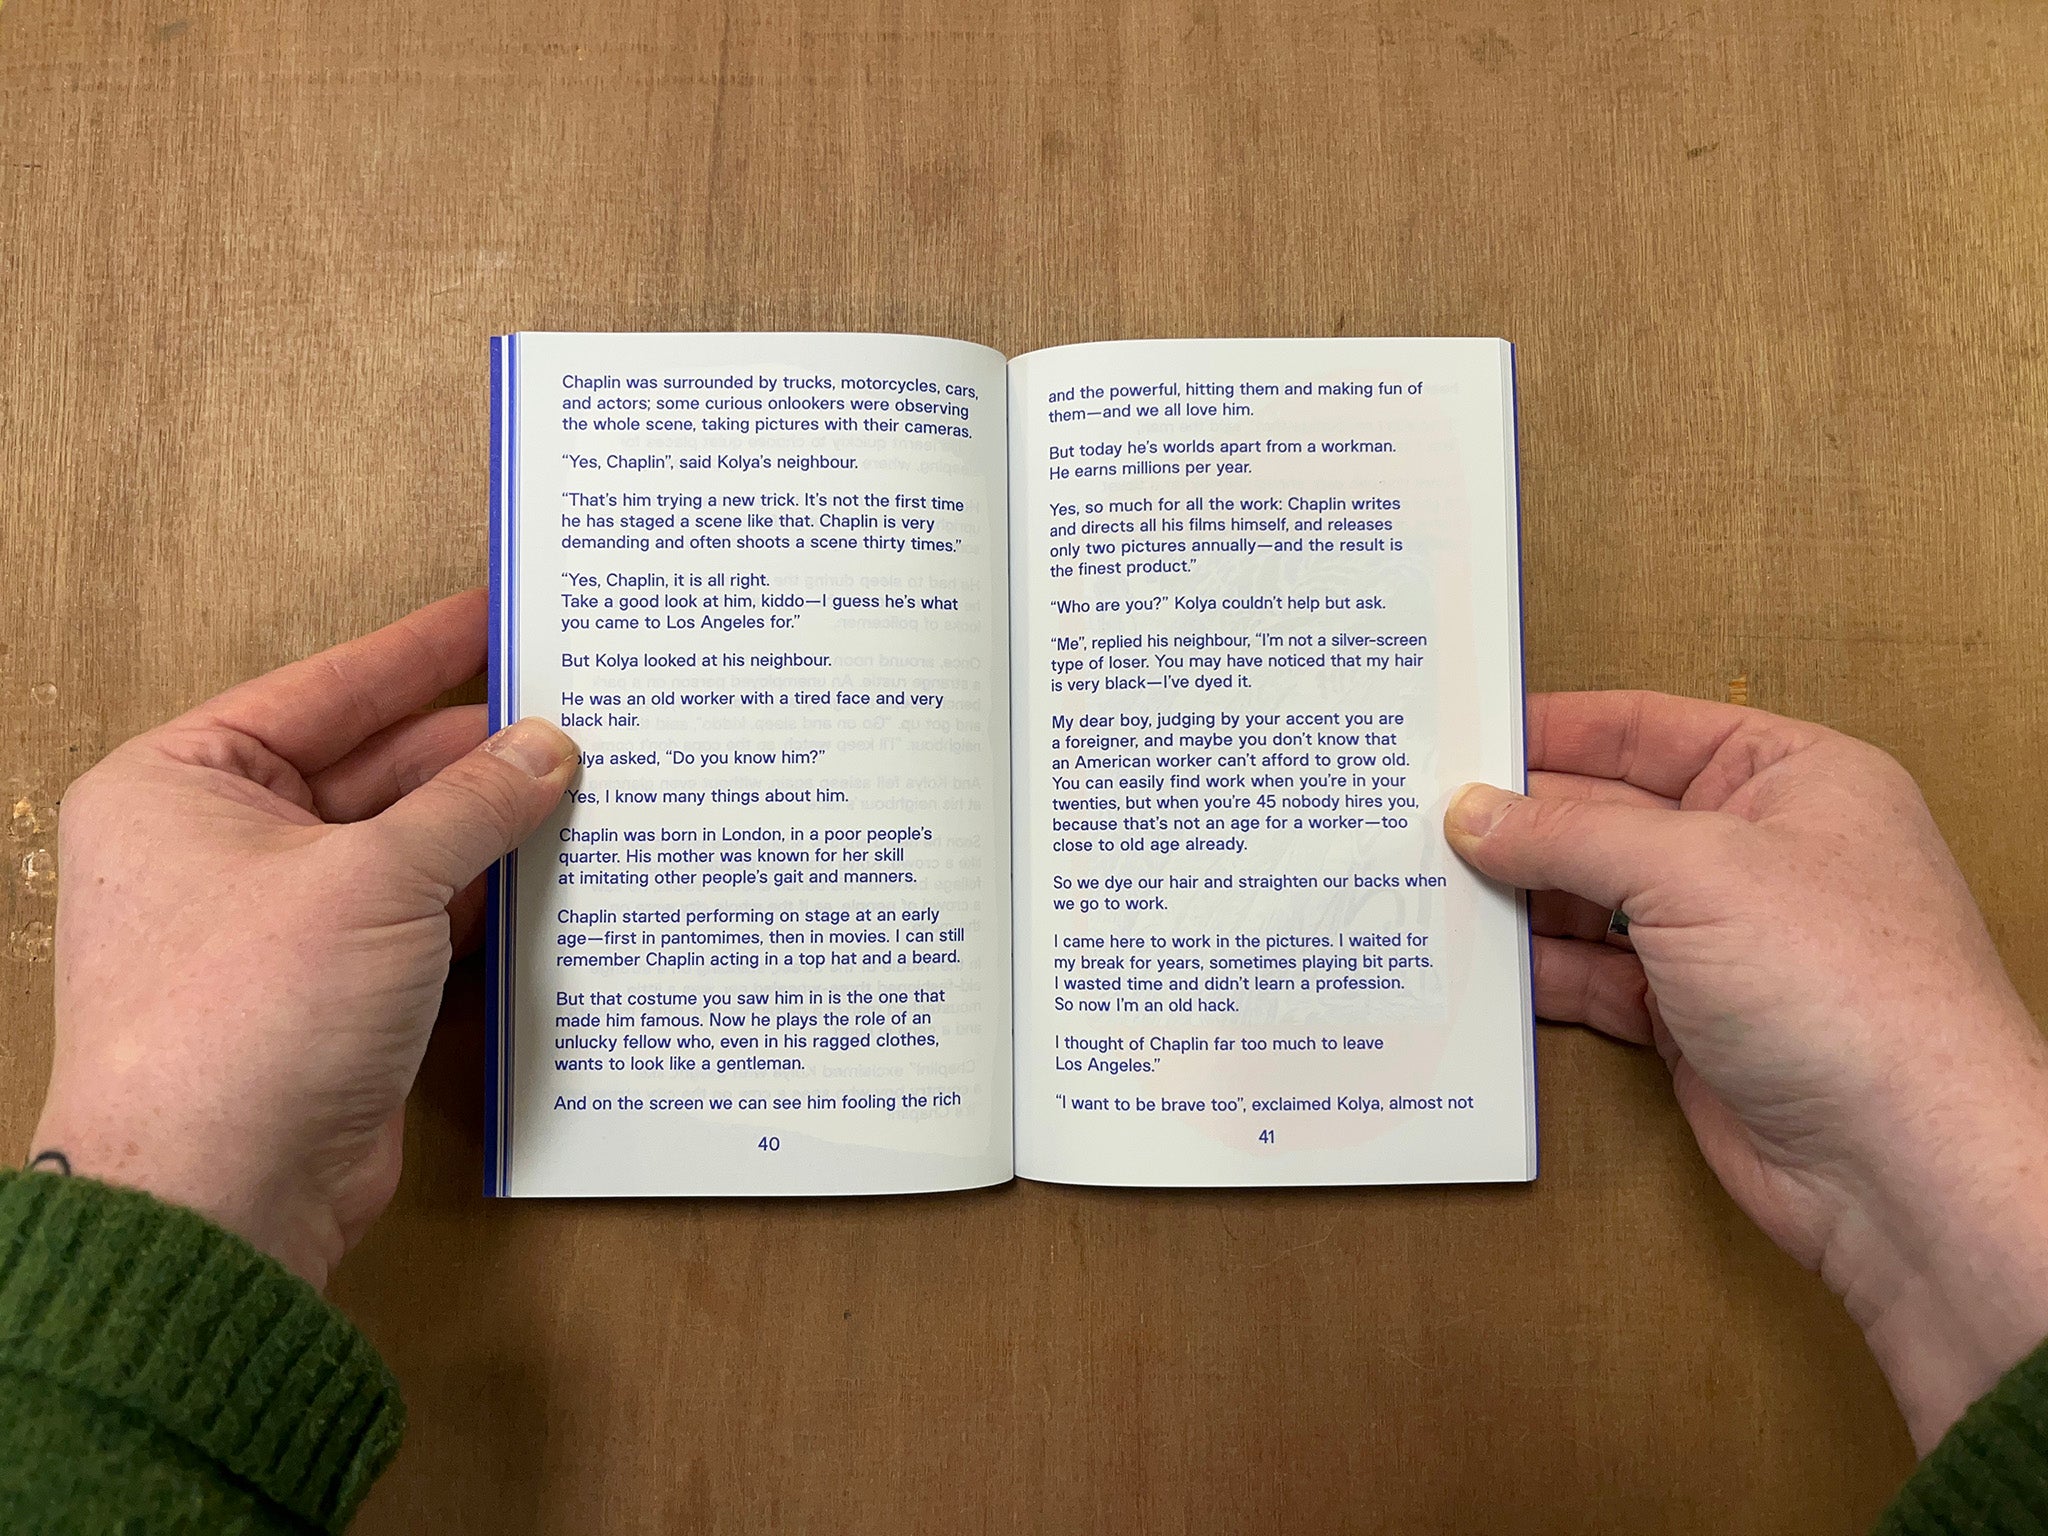 Chaplin was surrounded by trucks, motorcycles, cars,
and actors; some curious onlookers were observing
the whole scene, taking pictures with their cameras.
“Yes, Chaplin”, said Kolya’s neighbour.
“That’s him trying a new trick. It’s not the first time
he has staged a scene like that. Chaplin is very
demanding and often shoots a scene thirty times.”
“Yes, Chaplin, it is all right.
Take a good look at him, kiddo—I guess he’s what
you came to Los Angeles for.”
But Kolya looked at his neighbour.
He was an old worker with a tired face and very
black hair.
olya asked, “Do you know him?”
“Yes, I know many things about him.
Chaplin was born in London, in a poor people’s
quarter. His mother was known for her skill
at imitating other people’s gait and manners.
Chaplin started performing on stage at an early
age—first in pantomimes, then in movies. I can still
remember Chaplin acting in a top hat and a beard.
But that costume you saw him in is the one that
made him famous. Now he plays the role of an
unlucky fellow who, even in his ragged clothes,
wants to look like a gentleman.
And on the screen we can see him fooling the rich
40
and the powerful, hitting them and making fun of
them—and we all love him.
But today he’s worlds apart from a workman.
He earns millions per year.
Yes, so much for all the work: Chaplin writes
and directs all his films himself, and releases
only two pictures annually—and the result is
the finest product.”
“Who are you?” Kolya couldn’t help but ask.
“Me”, replied his neighbour, “I’m not a silver-screen
type of loser. You may have noticed that my hair
is very black—I’ve dyed it.
My dear boy, judging by your accent you are
a foreigner, and maybe you don’t know that
an American worker can’t afford to grow old.
You can easily find work when you’re in your
twenties, but when you’re 45 nobody hires you,
because that’s not an age for a worker—too
close to old age already.
So we dye our hair and straighten our backs when
we go to work.
I came here to work in the pictures. I waited for
my break for years, sometimes playing bit parts.
I wasted time and didn’t learn a profession.
So now I’m an old hack.
I thought of Chaplin far too much to leave
Los Angeles.”
“I want to be brave too”, exclaimed Kolya, almost not
41